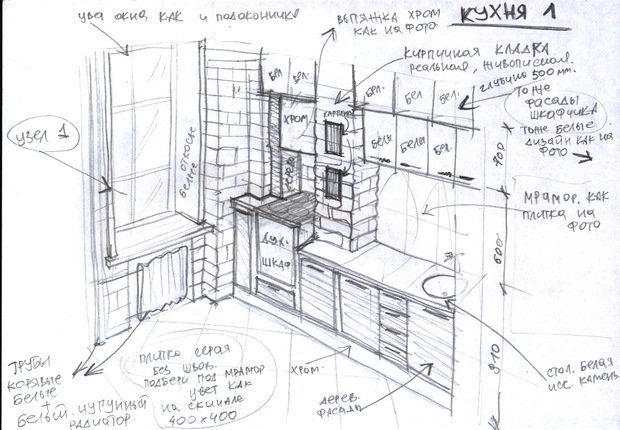 КУХНЯ 1
УЗЕЛ ОКНА, КАК И ПОДОКОННИК
ВЫТЯЖКА ХРОМ
КАК НА ФОТО
КИРПИЧНАЯ КЛАДКА
РЕАЛЬНАЯ, ЖИВОПИСНАЯ.
ГЛУБИНА 500 мм.
ТОЖЕ
ФАСАДЫ
ШКАФЧИКА
ТОЖЕ БЕЛЫЕ
ДИЗАЙН КАК НА
ФОТО
УЗЕЛ 1
ОТКОСЫ
БЕЛЫЕ
БЕЛ
БЕЛ.
БЕЛ.
БЕЛ
БЕЛ.
ХРОМ
КАРТИНА
БЕЛЫ
БЕЛЫ
БЕЛ.
700
МРАМОР. КАК
ПЛИТКА НА
ФОТО
600
910
ДУХ.
ШКАФ
ТРУБЫ
КОРЯВЫЕ
БЕЛЫЕ
+
БЕЛЫЙ ЧУГУННЫЙ
РАДИАТОР.
ПЛИТКА СЕРАЯ
БЕЗ ШВОВ.
ПОДБЕРИ ПОД МРАМОР
ЦВЕТ КАК
НА СКИНАЛЕ
400×400
ХРОМ.
ДЕРЕВ.
ФАСАДЫ
СТОЛ. БЕЛАЯ
ИСК. КАМЕНЬ.